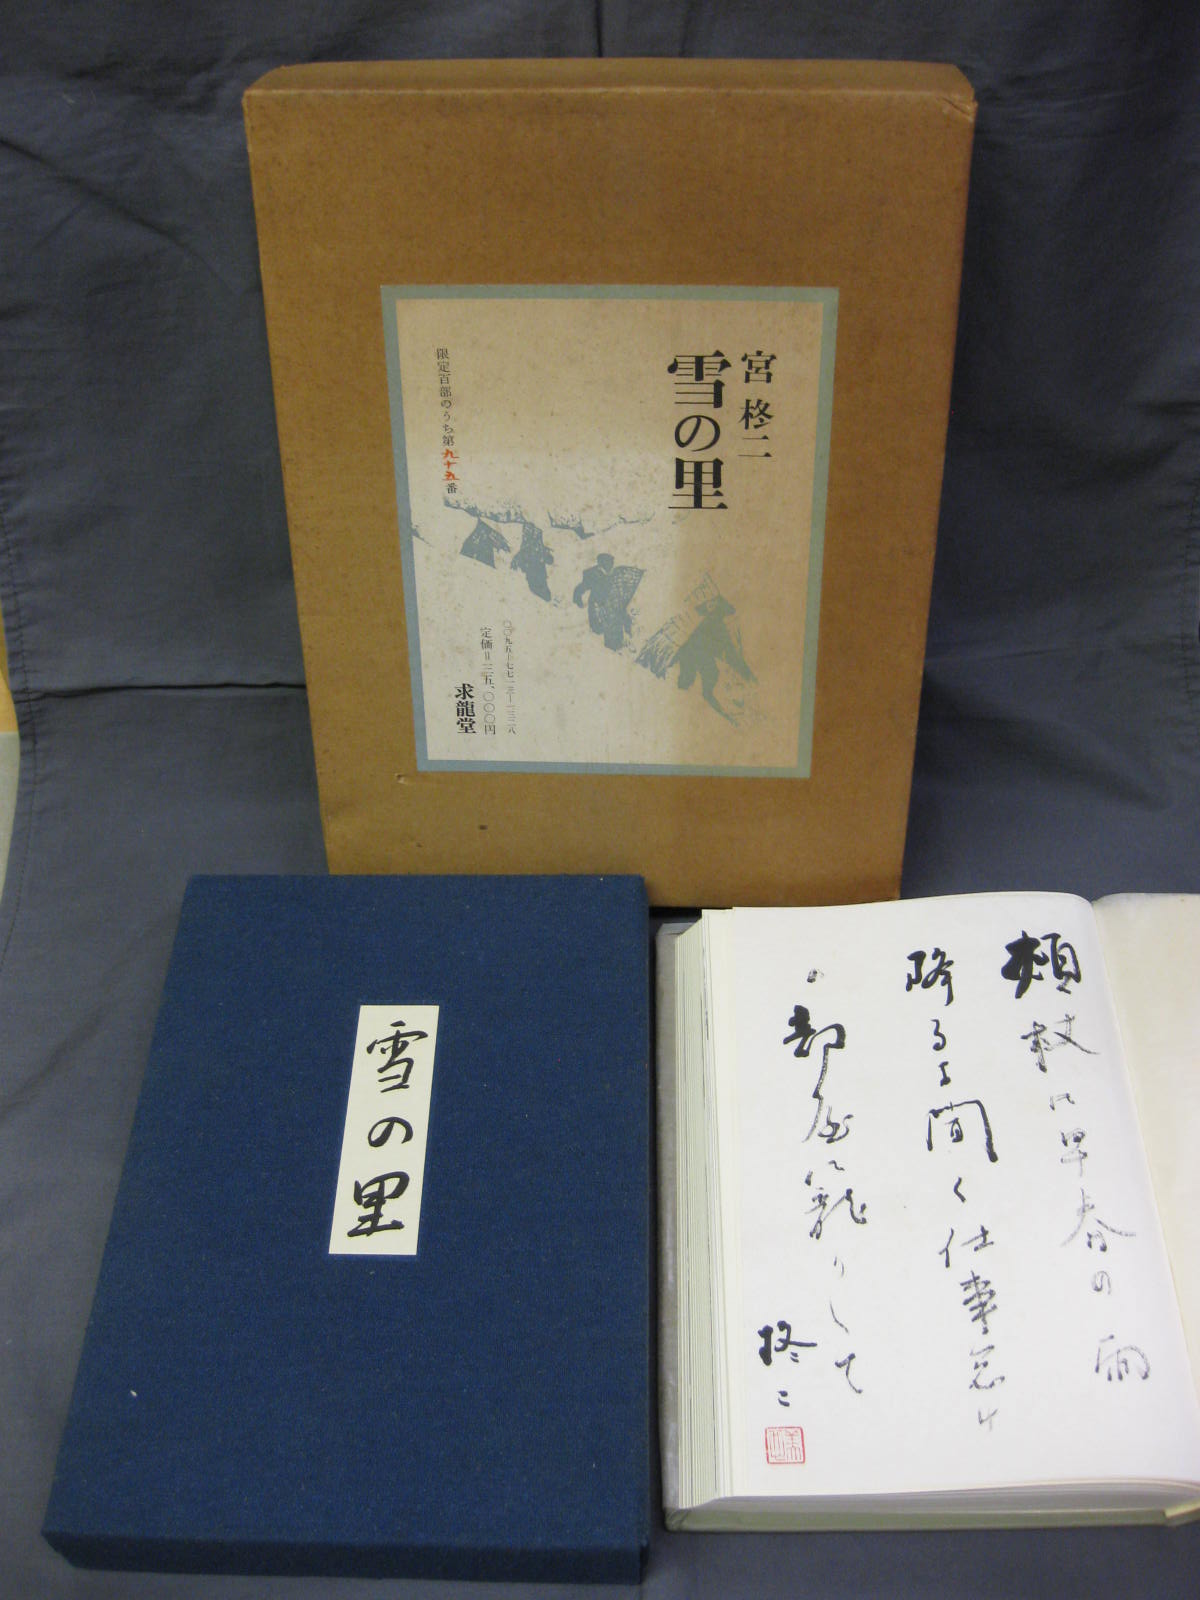 宮 柊二
雪の里
限定百部のうち第九十五番
〇〇九五―七七一三―一三二八
定価＝二五、〇〇〇円
求龍堂
雪の里
頬杖に早春の雨
降るよ聞く仕事怠け
の部屋に籠りして
柊二